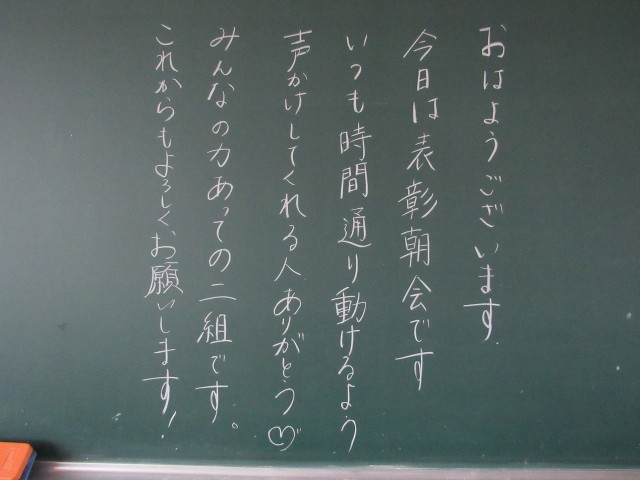 おはようございます.
今日は表彰朝会です
いつも時間通り動けるよう
声かけしてくれる人ありがとう♡
みんなの力あっての二組です。
これからもよろしくお願いします!